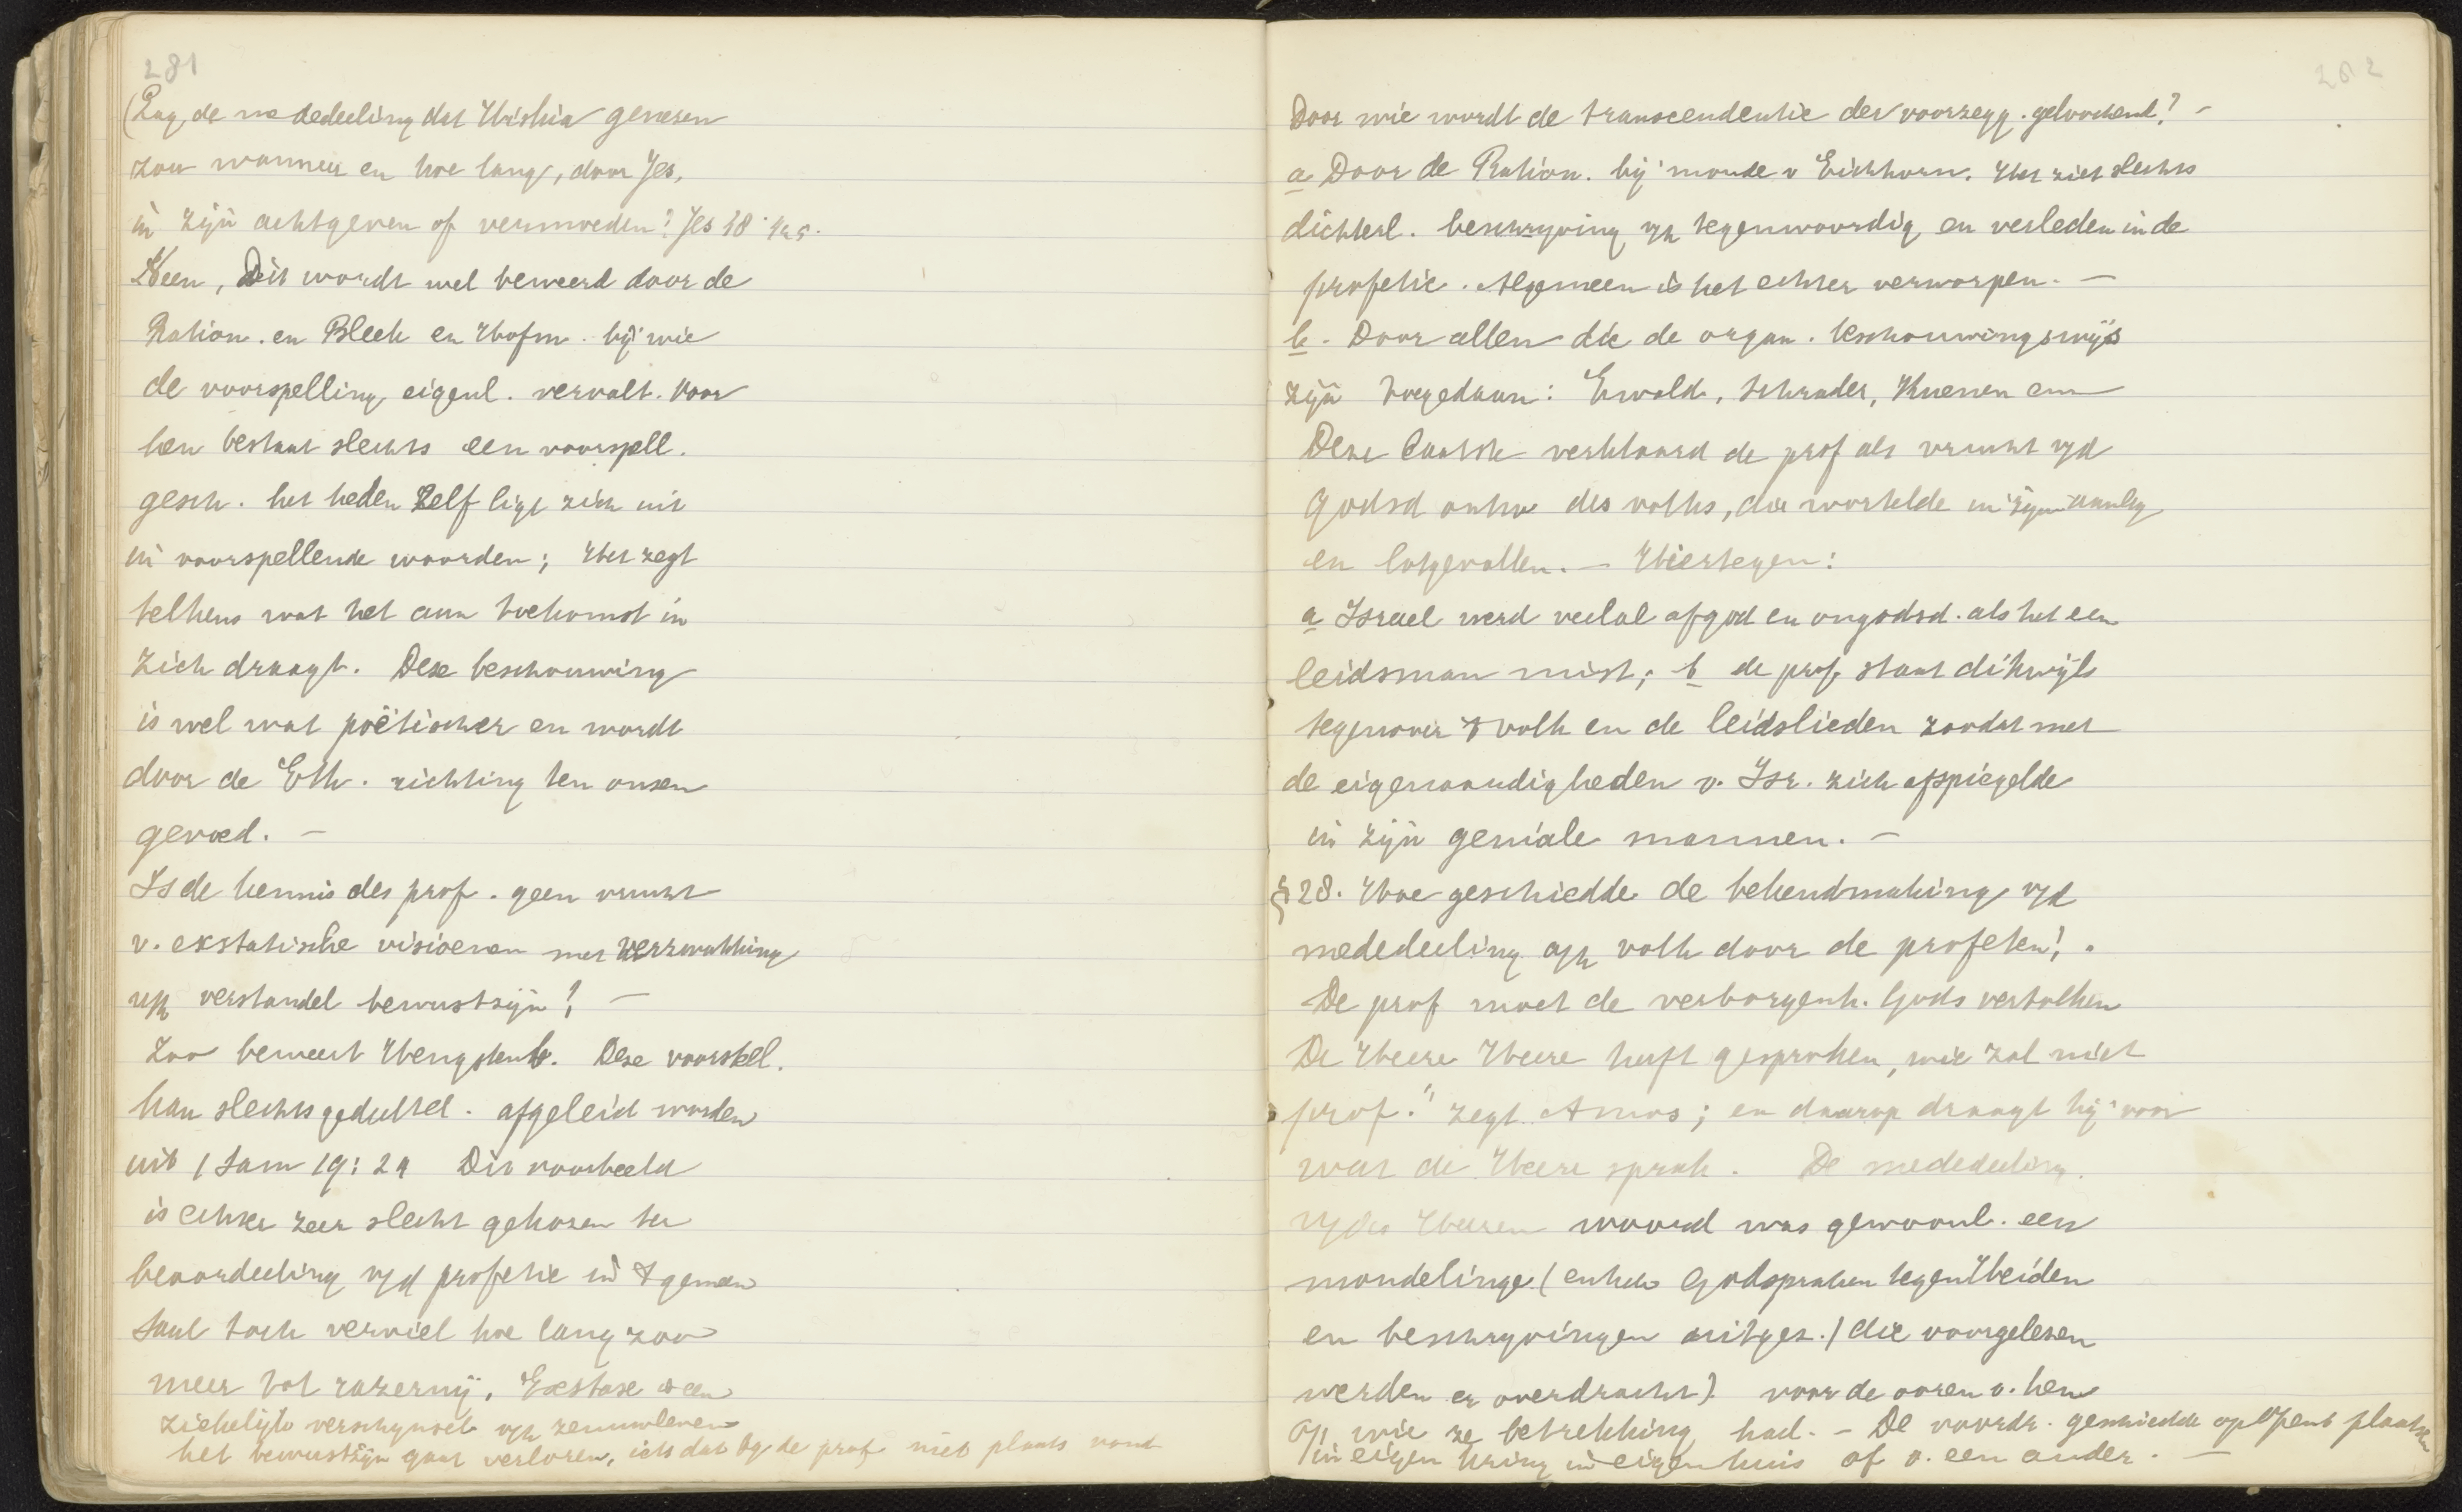 281
(Lag de mededeeling dat Hiskia genesen
zou wanneer en hoe lang, door Jes.
in zijn achtgeven of vermoeden? Jes 38
Neen, Dit wordt wel beweerd door de
Ration. en Bleek en Hofm. bij wie
de voorspelling eigenl. vervalt. Voor
hen bestaat slechts een voorspell.
gesch. het heden zelf ligt zich uit
in voorspellende woorden; Het zegt
telkens wat het aan toekomst in
zich draagt. Deze beschouwing
is wel wat poëtischer en wordt
door de Eth. richting ten onzen
gevoed. —
Is de kennis des prof. geen vrucht
v. ekstatische visioenen met verzwakking
v/h verstandel bewustzijn? —
Zoo beweert Hengstenb. Deze voorstel.
kan slechts gedeeltel. afgeleid worden
uit 1 Sam 19:24 Dit voorbeeld
is echter zeer slecht gekozen ter
beoordeeling v/d profetie in 't gemeen
Saul toch verviel hoe lang zoo
meer tot razernij. Exstase is een
ziekelijk verschynsel v/h zenuwleven
het bewustzijn gaat verloren, iets dat by de prof niet plaats vond
282
Door wie wordt de transcendentie der voorzegg. geloochend? —
a Door de Ration. bij monde v Eichhorn. Het ziet slechts
dichterl. beschryving v/h tegenwoordig en verleden in de
profetie. Algemeen is het echter verworpen. —
b. Door allen die de organ. beschouwingswijs
zijn toegedaan: Ewald, Schrader, Kuenen enz
Deze laatste verklaard de prof als vrucht v/d
Godsd ontw des volks, die wortelde in zijn aanleg
en lotgevallen. — Hiertegen:
a Israel werd veelal afgod en ongodsd. als het een
leidsman mist; b de prof staat dikwijls
tegenover 't volk en de leidslieden zoodat niet
de eigenaardigheden v. Isr. zich afspiegelde
in zijn geniale mannen. —
§28. Hoe geschiedde de bekendmaking v/d
mededeeling a/h volk door de profeten?.
De prof moet de verborgenh. Gods vertolken
De Heere Heere heeft gesproken, wie zal niet
prof." zegt Amos; en daarop draagt hij voor
wat de Heere sprak. De mededeeling
v/des Heeren woord was gewoonl. een
mondelinge (enkele Godspraken tegen Heiden
en beschryvingen uitgez.) die voorgelesen
werden en overdracht) voor de ooren v. hen
op wie ze betrekking had. — De voordr. geschiedde op Open plaatsen
in eigen kring in eigen huis of v. een ander. —